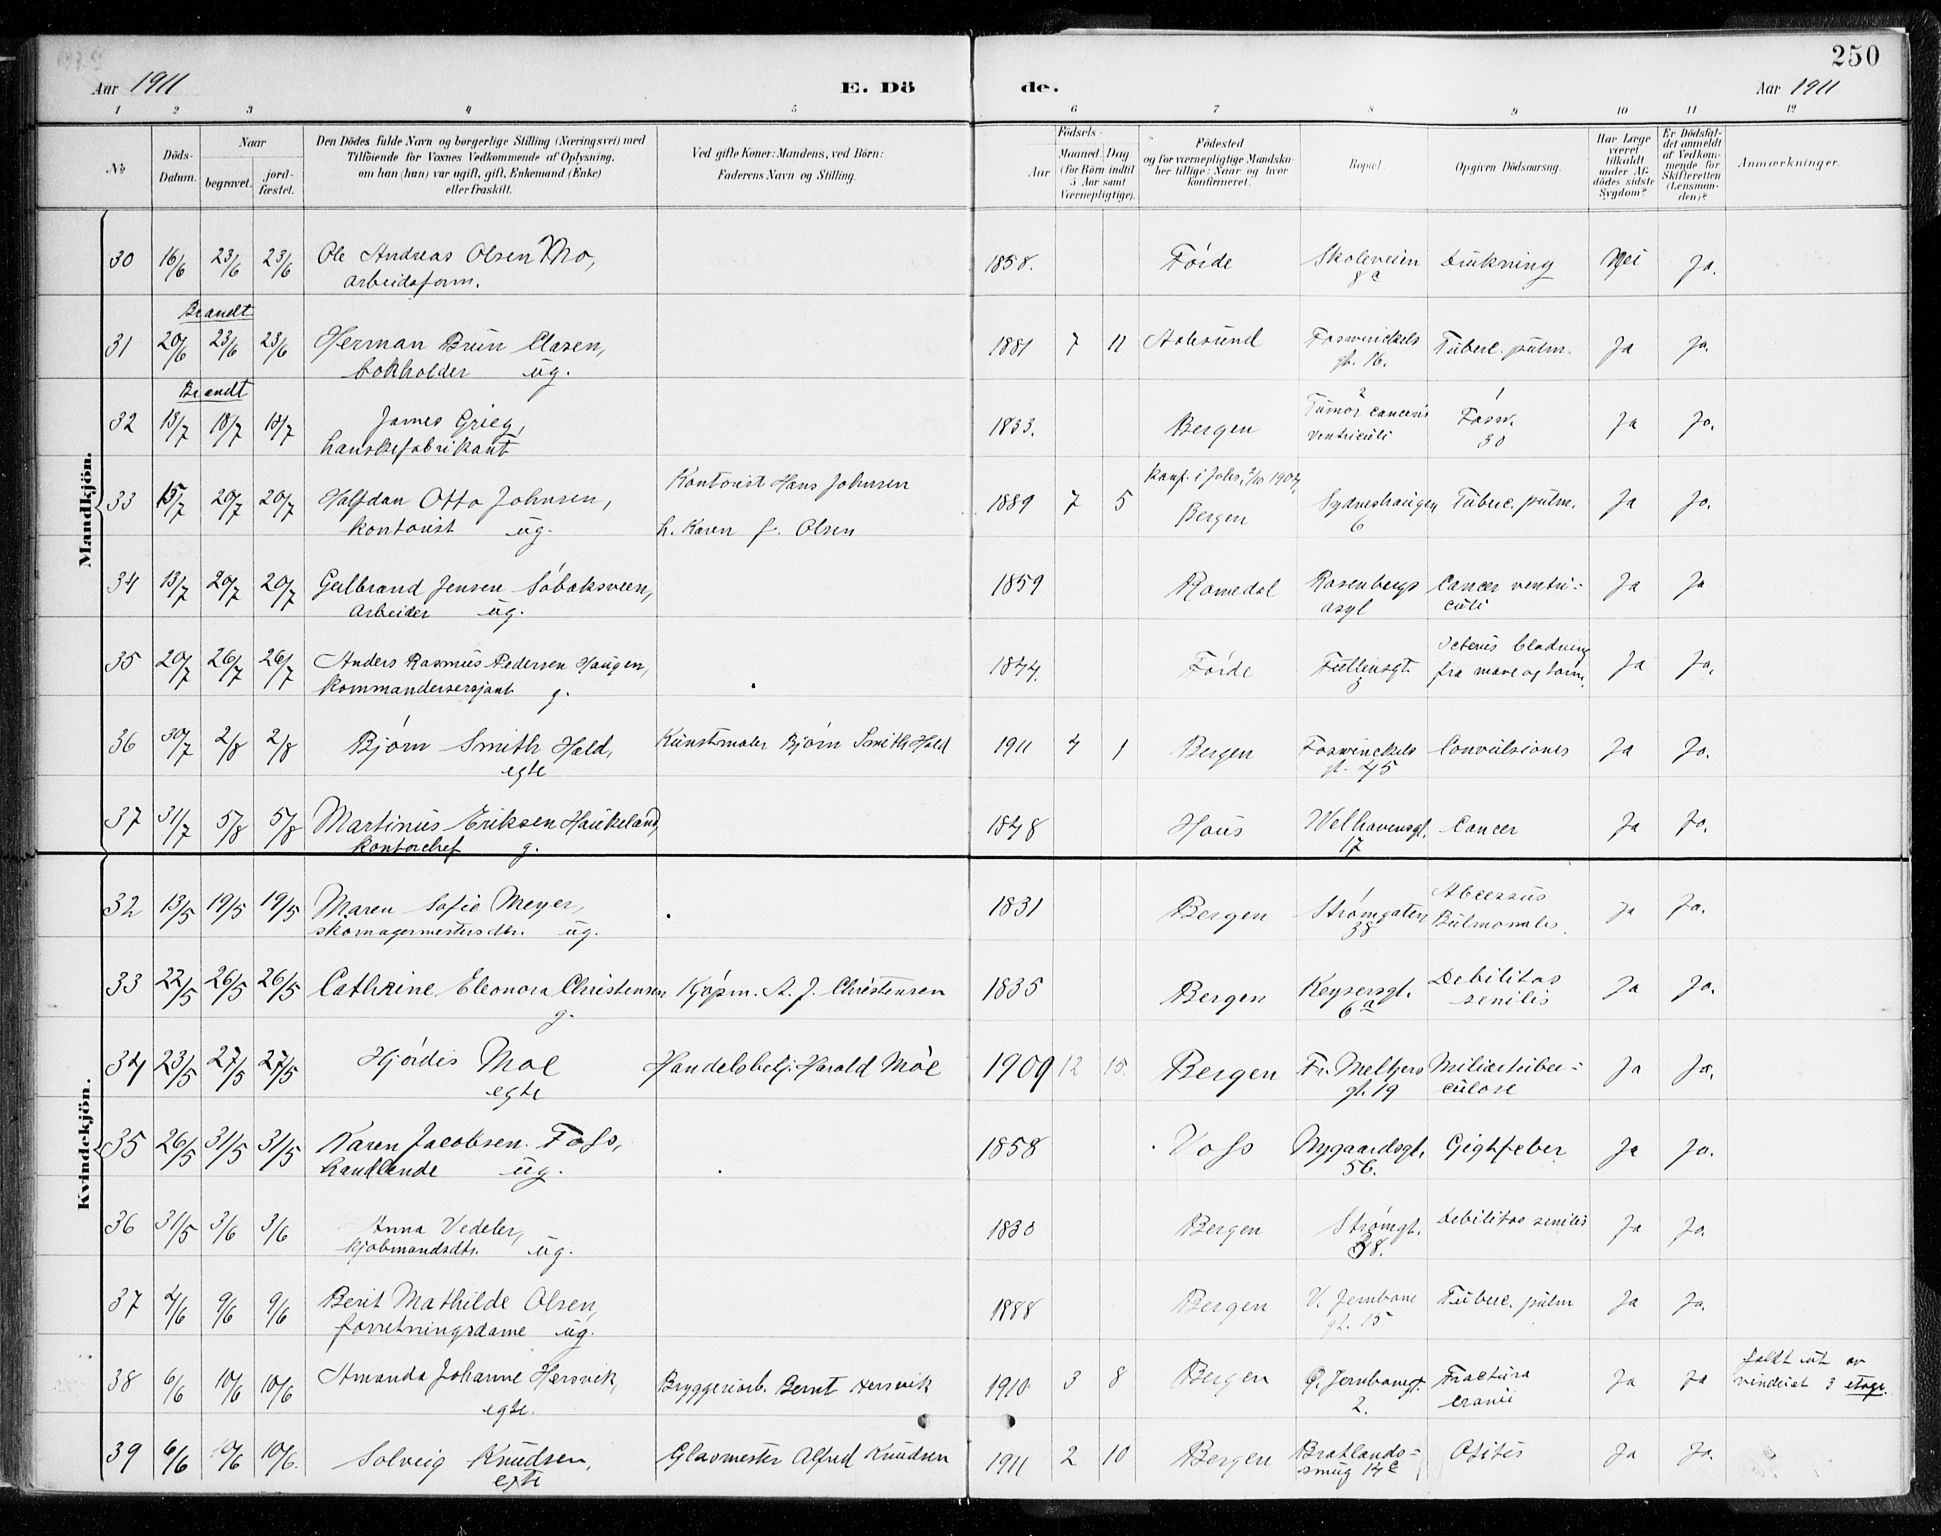 250
Aar 1911
E. Dö
de.
Aar 1911
1 2 3 4 5 6 7 8 9 10 11 12
No
Döds-Datum.
Naar
begravet.
jord-fæstet.
Den Dödes fulde Navn og borgerlige Stilling (Næringsvei) med
Tilföiende for Voxnes Vedkommende af Oplysning,
om han (hun) var ugift, gift, Enkemand (Enke)
eller fraskilt.
Ved gifte Koner: Mandens, ved Börn:
Faderens Navn og Stilling.
Födsels-
Aar
Maaned Dag
(for Börn indtil
5 Aar samt
Værnepligtige).
Födested
og for værnepligtige Mandska-
ber tillige: Naar og hvor
konfirmeret.
Bopæl.
Opgiven Dödsaarsag.
Har Læge
været
tilkaldt
under Af-
dödes sidste
Sygdom?
Er Dödsfal-
det anmeldt
af Vedkom-
mende for
Skifteretten
(Lensman-
den)?
Anmærkninger.
Mandkjön.
30 16/6 23/6 23/6 Ole Andreas Olsen Mo, 1858. Förde Skoleveien Drukning Nei Ja.
arbeidsform. 8a
Brandt
31 20/6 23/6 23/6 Herman Brun Clasen, 1881 7 11 Aalesund Foswinckels Tuberc. pulm. Ja Ja.
bokholder ug. gt. 16.
Brandt
32 13/7 18/7 18/7 James Grieg, 1833. Bergen Tumor canceris Fosw. Ja Ja.
hanskefabrikant ventriculi 30
33 15/7 20/7 20/7 Halfdan Otto Johnsen, Kontorist Hans Johnsen 1889 7 5 Konf. i Johs. 2/10 1904, Sydneshaugen Tuberc. pulm. Ja Ja.
kontorist ug. h. Karen f. Olsen Bergen 6
34 13/7 20/7 20/7 Gulbrand Jensen Söbaksveen, 1859 Romedal Rosenbergs Cancer ventri- Ja Ja
arbeider ug. asyl culi
35 20/7 26/7 26/7 Anders Rasmus Pedersen Haugen, 1844. Förde Futtensgt. Icterus blødning Ja Ja.
kommandersersjant g. 3 fra mave og tarm.
36 30/7 2/8 2/8 Bjørn Smith Hald, Kunstmaler Bjørn Smith Hald 1911 4 1 Bergen Foswinckels Convulsiones Ja Ja.
egte gt. 45
37 31/7 5/8 5/8 Martinus Eriksen Haukeland, 1848 Haus Welhavensgt. Cancer Ja Ja.
kontorchef g. 17
Kvindekjön.
32 13/5 19/5 19/5 Maren Sofie Meyer, 1831 Bergen Strømgaten Abcessus Ja Ja.
skomagermestersdtr. ug. 38 Pulmonalis.
33 22/5 26/5 26/5 Cathrine Eleonora Christensen Kjøpm. A. J. Christensen 1835 Bergen Keysersgt. Debilitas Ja Ja.
g. 6a senilis
34 23/5 27/5 27/5 Hjørdis Moe Handelsbetj. Harald Moe 1909 12 15. Bergen Fr. Meltzers Miliærtuber- Ja Ja.
egte gt. 19 culose
35 26/5 31/5 31/5 Karen Jacobsen Foss, 1858 Voss Nygaardsgt. Gigtfeber Ja Ja.
handlende ug. 56.
36 31/5 3/6 3/6 Anna Vedeler, 1830 Bergen Strømgt. Debilitas senilis Ja Ja.
kjøbmandsdtr. ug. 38.
37 4/6 9/6 9/6 Berit Mathilde Olsen, 1888 Bergen V. Jernbane Tuberc. pulm Ja Ja.
forretningsdame ug. gt. 15
38 6/6 10/6 10/6 Amanda Johanne Hersvik, Bryggeriarb. Bernt Hersvik 1910 3 8 Bergen Ø. Jernbanegt. Fractura Ja Ja faldt ut av
egte. 2. cranii vinduet 3 etage.
39 6/6 10/6 10/6. Solveig Knudsen, Glasmester Alfred Knudsen 1911 2 10 Bergen Bratlands- Otites Ja Ja.
egte smug 14c